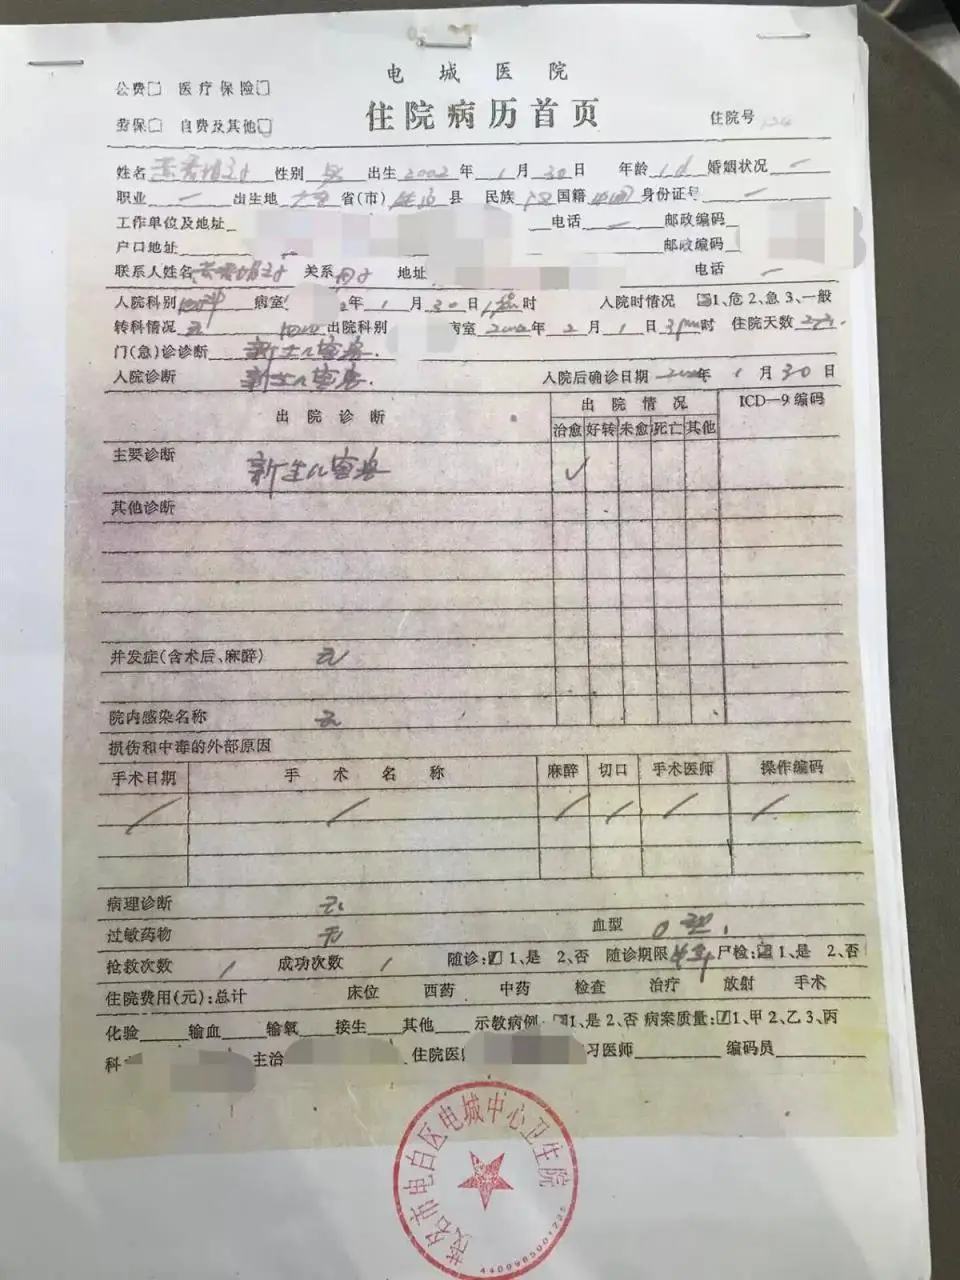 电城医院
公费□ 医疗保险□
住院病历首页
劳保□ 自费及其他□
住院号
姓名 性别 男 出生 2002 年 1 月 30 日 年龄 1d 婚姻状况 —
职业 — 出生地 广东 省(市) 县 民族 汉 国籍 中国 身份证号 —
工作单位及地址 电话 — 邮政编码
户口地址 邮政编码
联系人姓名 关系 母子 地址 电话 —
入院科别 病室 2年 1 月 30 日 时 入院时情况 1、危 2、急 3、一般
转科情况 无 出院科别 病室 2002 年 2 月 1 日 3pm 时 住院天数 2天
门(急)诊诊断 新生儿窒息.
入院诊断 新生儿窒息. 入院后确诊日期 2002年 1 月 30 日
出院诊断 出院情况 ICD—9编码
治愈 好转 未愈 死亡 其他
主要诊断 新生儿窒息 ✓
其他诊断
并发症(含术后、麻醉) 无
院内感染名称 无
损伤和中毒的外部原因
手术日期 手术名称 麻醉 切口 手术医师 操作编码
/ / / / / /
病理诊断 无
过敏药物 无 血型 O型.
抢救次数 1 成功次数 1 随诊:☑ 1、是 2、否 随诊期限 尸检: 1、是 2、否
住院费用(元):总计 床位 西药 中药 检查 治疗 放射 手术
化验 输血 输氧 接生 其他 示教病例: 1、是 2、否 病案质量: 1、甲 2、乙 3、丙
科 主治 住院医 习医师 编码员
茂名市电白区电城中心卫生院